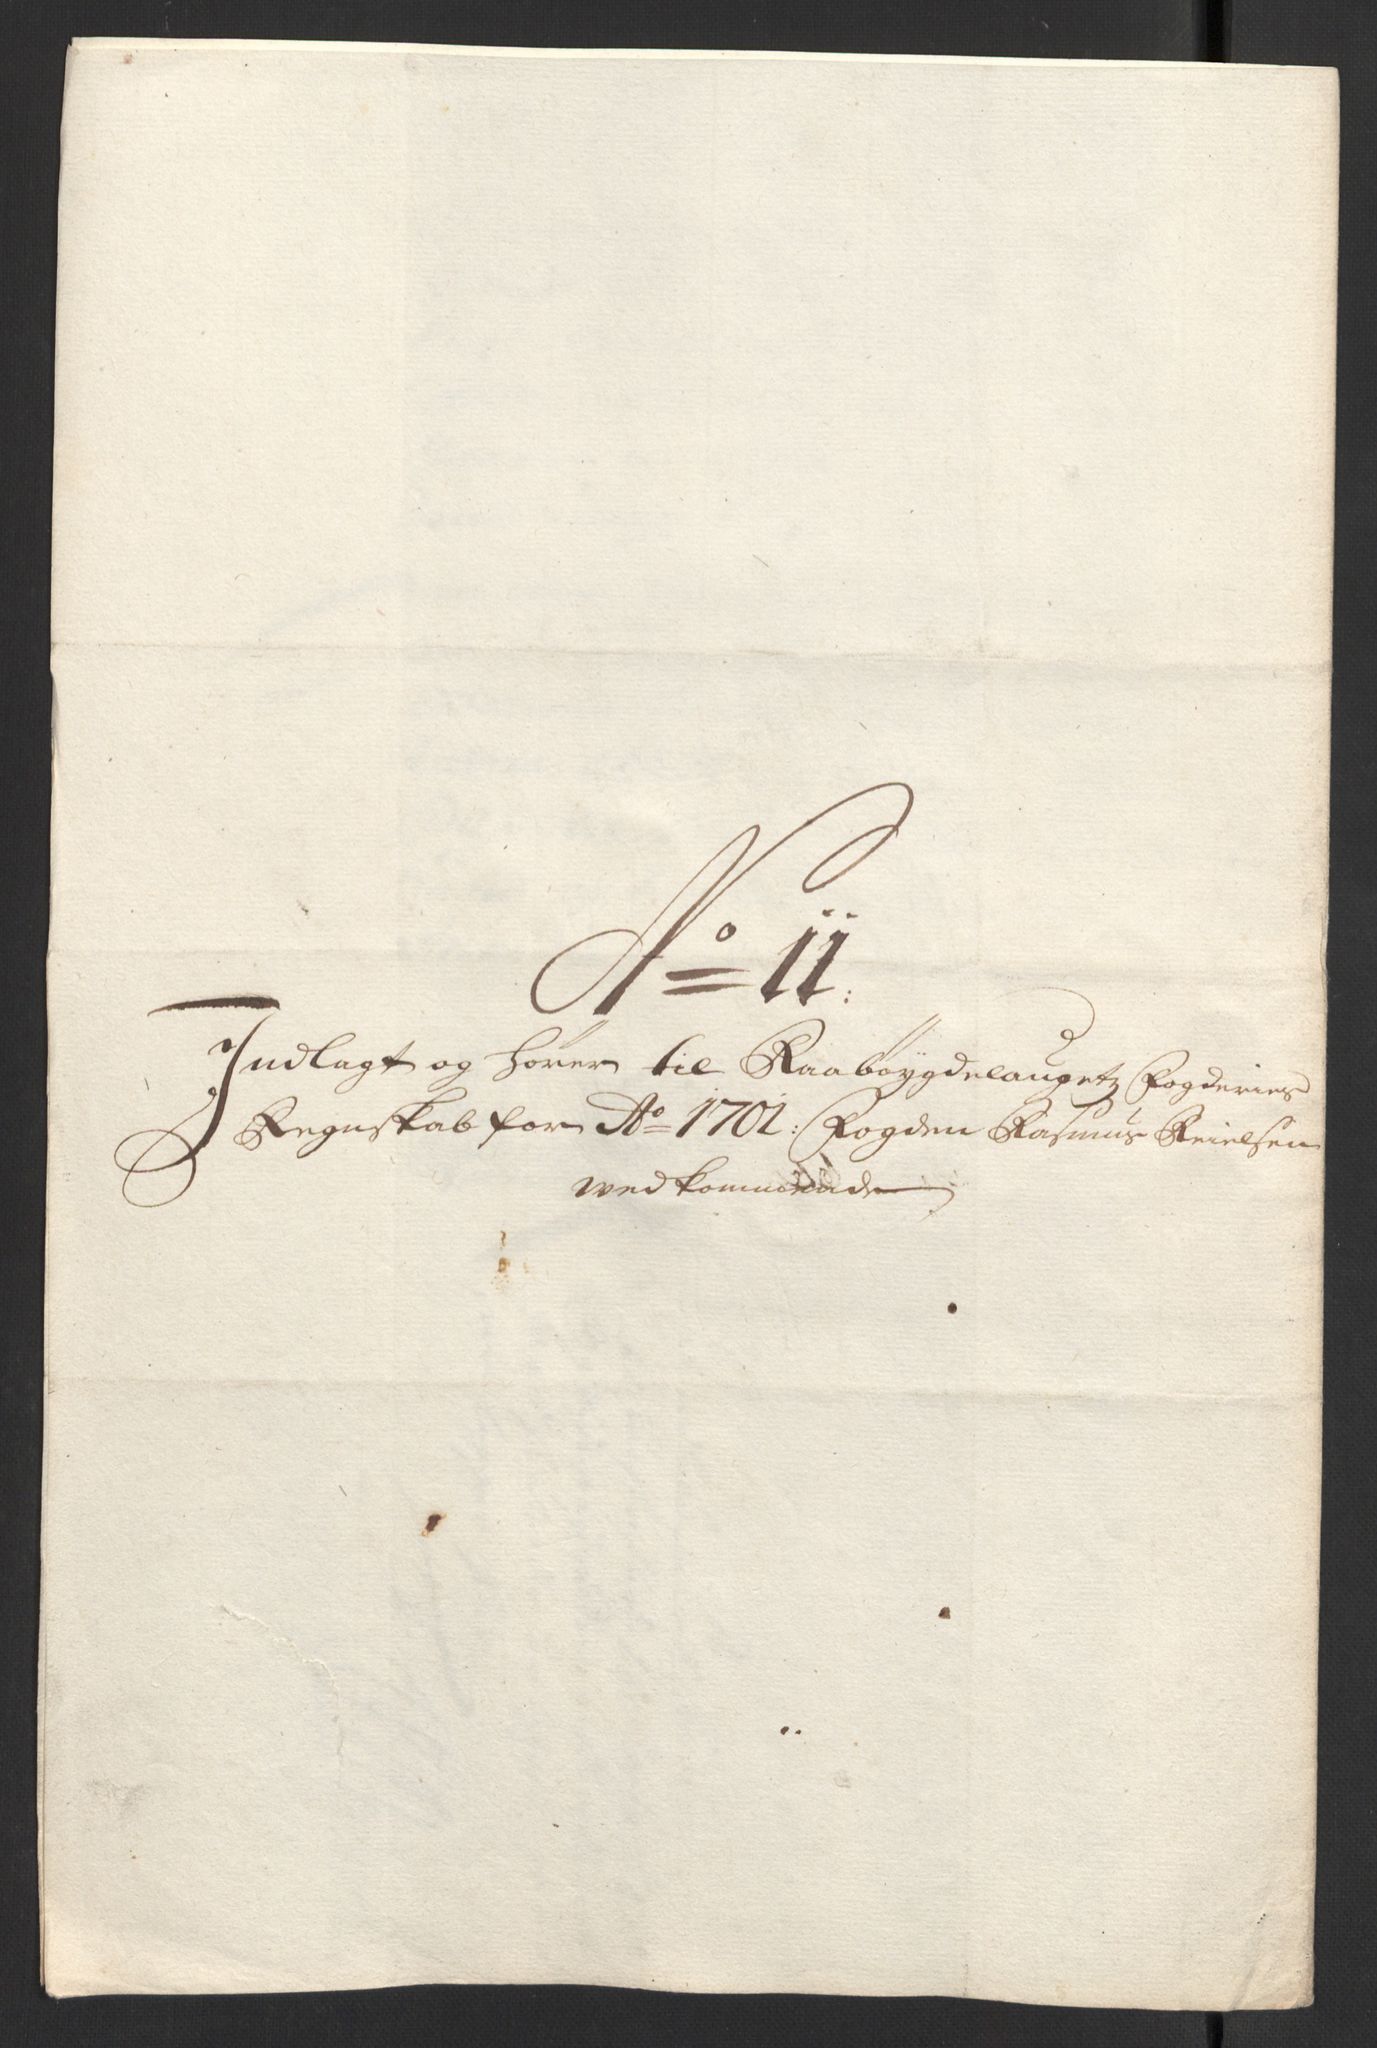 No 11:
Indlagt og hører til Raabøygdelaugetz Fogderies
Regnskab for Ao 1701: Fogden Rasmus Keielsen
wedkommende